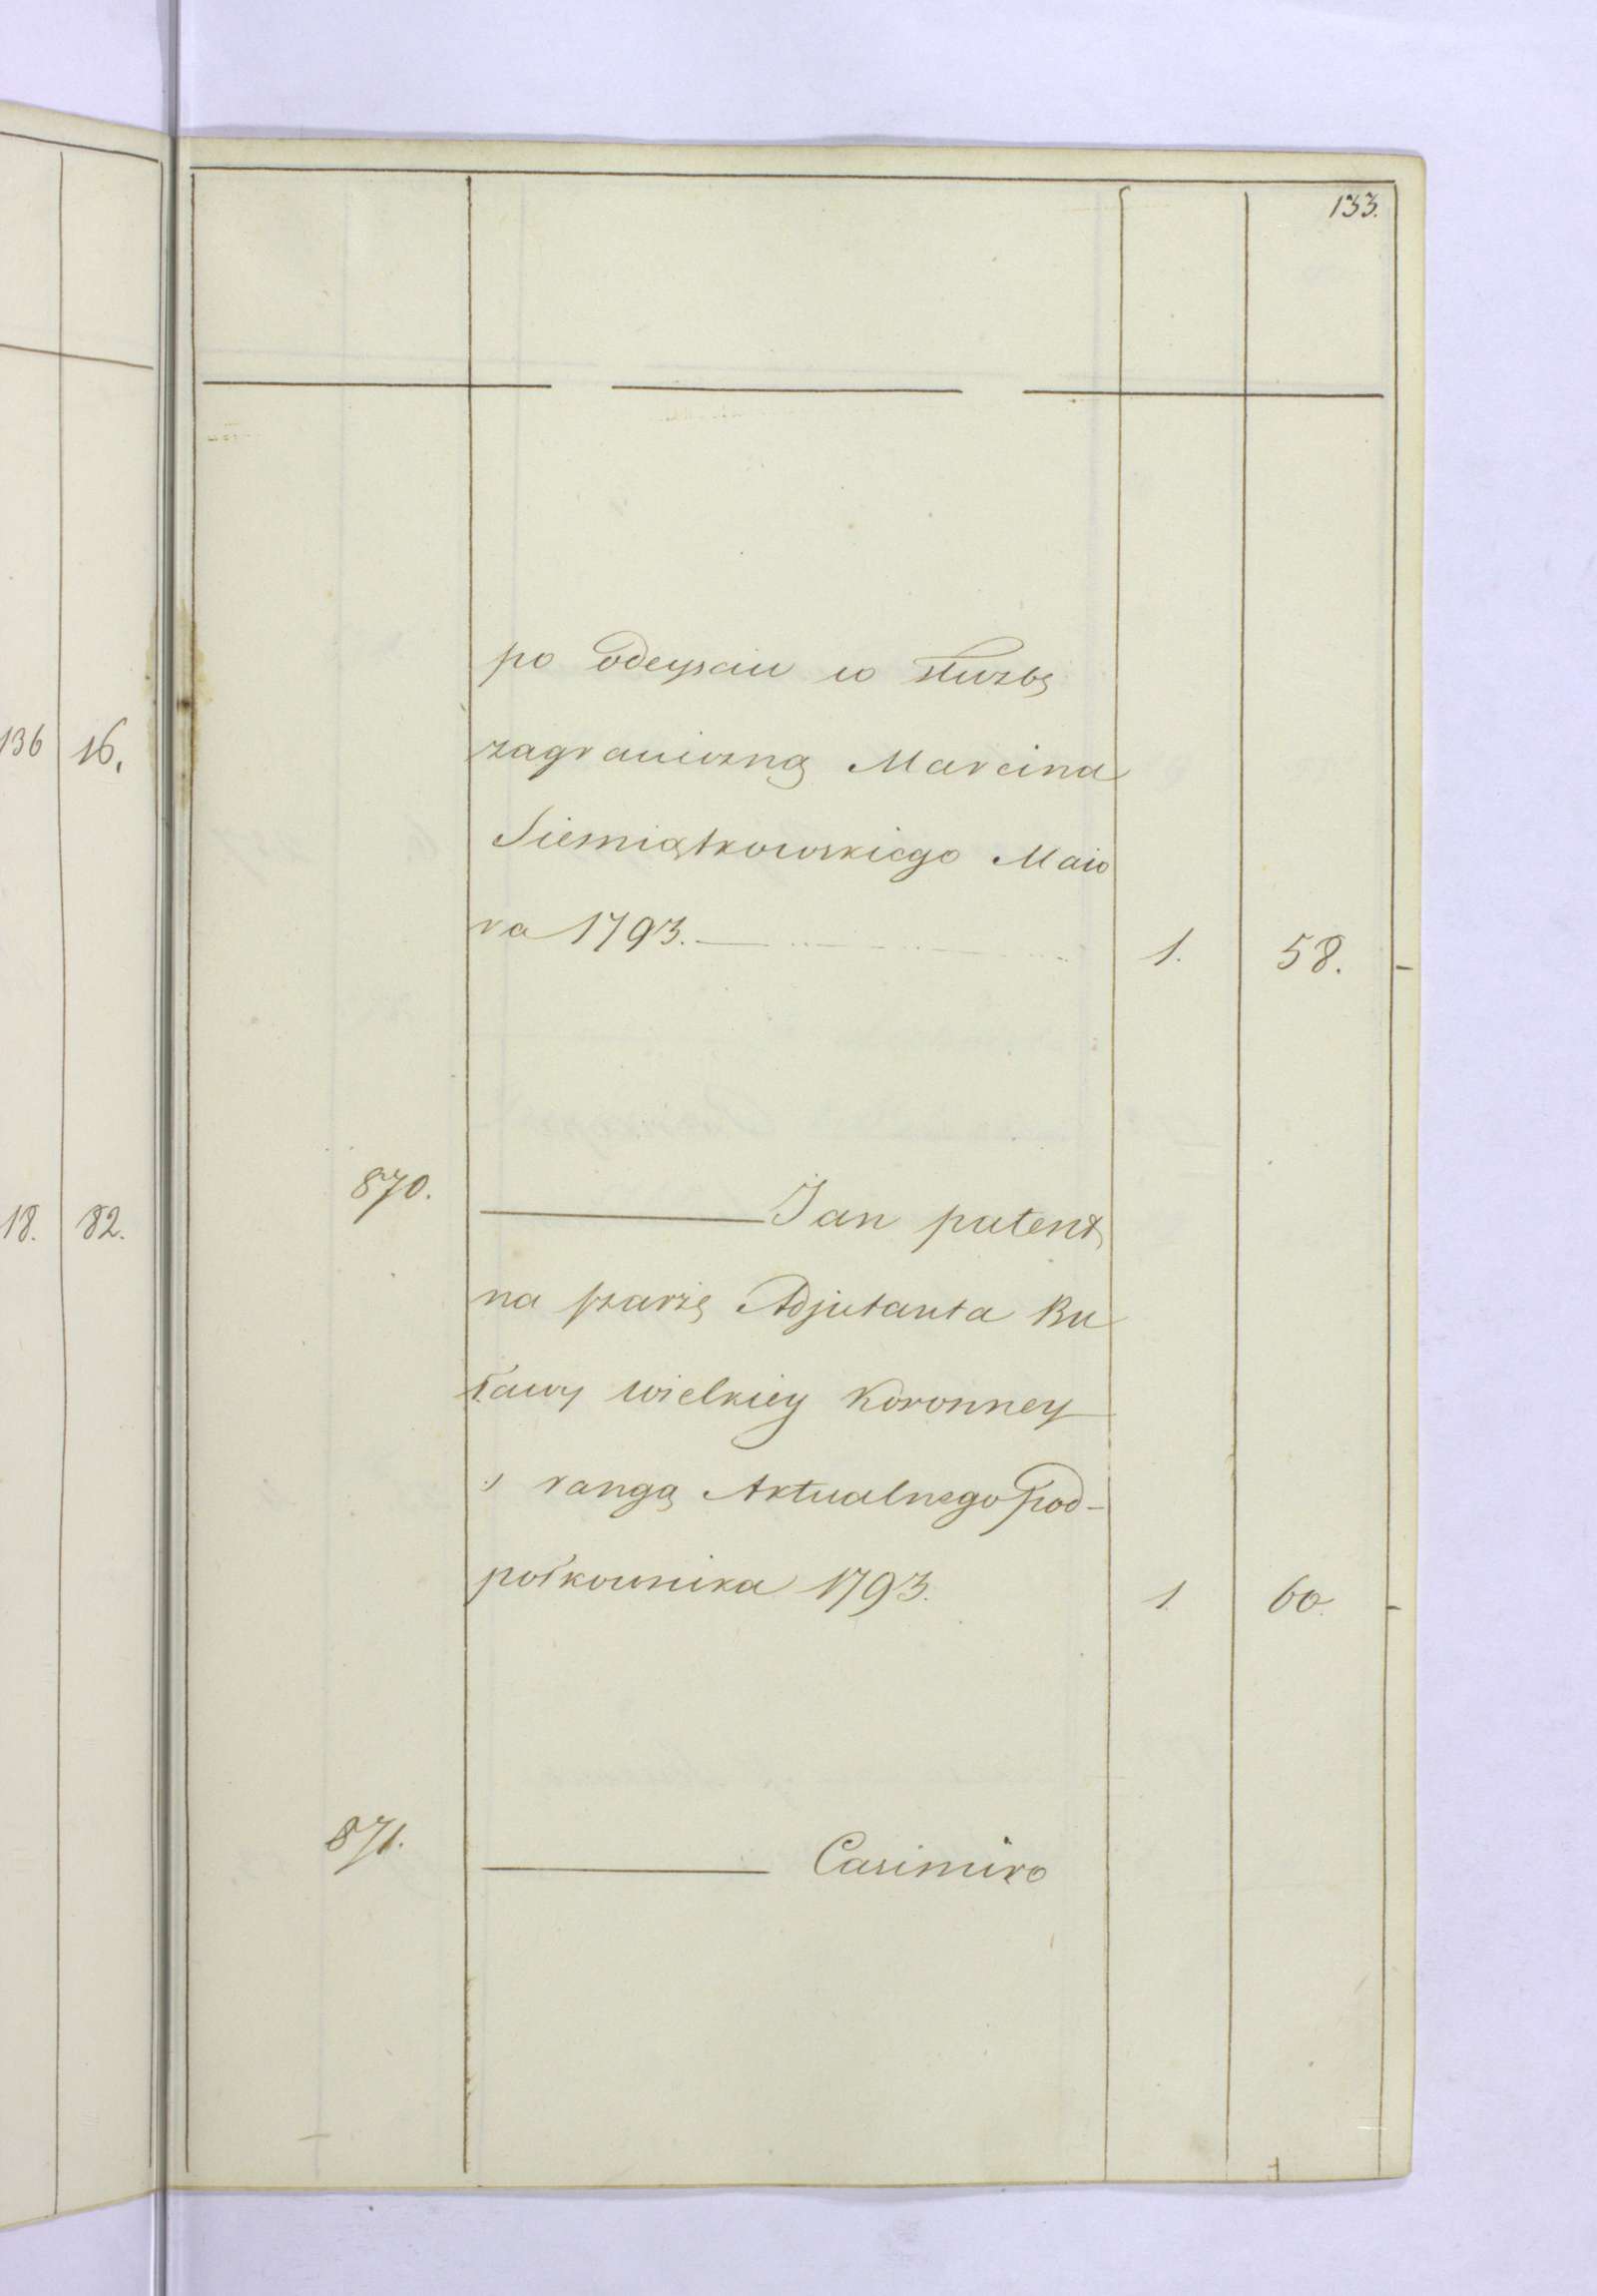 133.
po odeysciu w służbę
zagraniczną Marcina
Siemiątkowskiego Maio
ra 1793. 1. 58.
136 16.
870.
Jan patent
18. 82.
na szarżę Adjutanta Bu
ławy wielkiey Koronney
z rangą Aktualnego Pod-
połkownika 1793. 1. 60.
871.
Casimiro